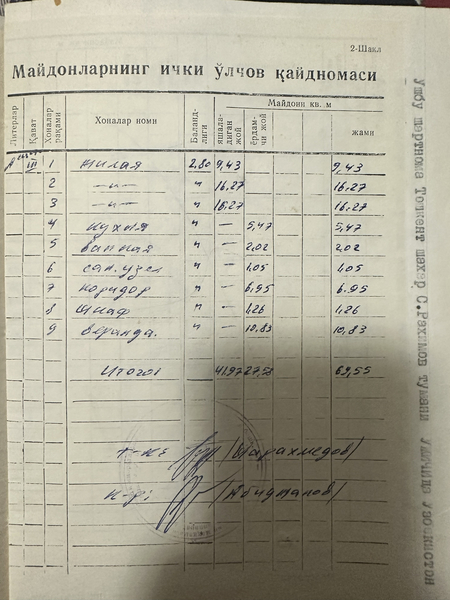 2-Шакл
Майдонларнинг ички ўлчов қайдномаси
Литерлар Қават Хоналар рақами Хоналар номи Баланд-лиги Майдони кв. м яшала-диган жой ёрдам-чи жой жами
III 1 жилая 2,80 9,43 9,43
2 —"— " 16.27 16.27
3 —"— " 16.27 16.27
4 кухня " — 5,47 5,47
5 ванная " — 2,02 2,02
6 сан. узел " — 1,05 1,05
7 коридор " — 6,95 6.95
8 шкаф " — 1,26 1,26
9 веранда. " — 10,83 10,83
Итого: 41.97 27,58 69,55
т-к: /Шарахмедов/
к-р:
Ушбу шартнома Тошкент шахар С.Рахимов тумани Узбекистон